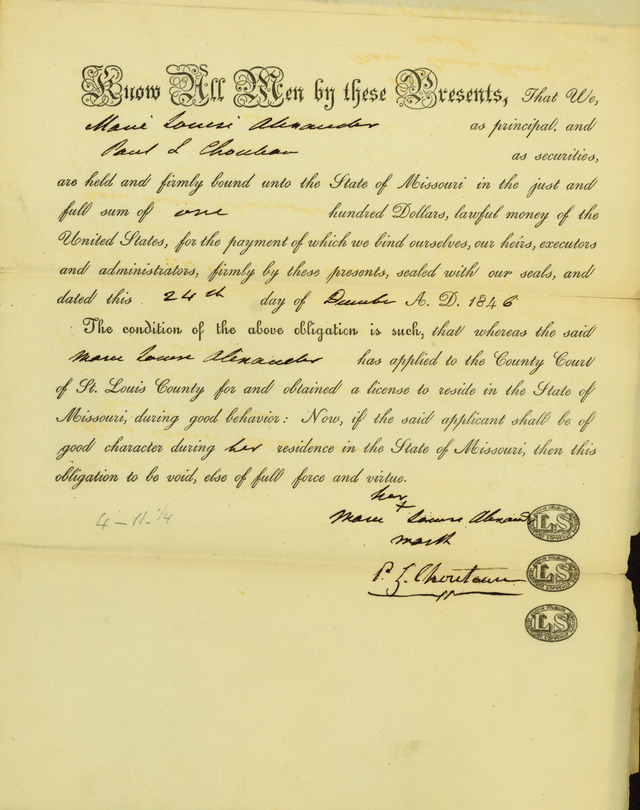 Know All Men by these Presents, That We,
Marie Louise Alexander as principal, and
Paul L Chouteau as securities,
are held and firmly bound unto the State of Missouri in the just and
full sum of one hundred Dollars, lawful money of the
United States, for the payment of which we bind ourselves, our heirs, executors
and administrators, firmly by these presents, sealed with our seals, and
dated this 24th day of December A. D. 1846
The condition of the above obligation is such, that whereas the said
Marie Louise Alexander has applied to the County Court
of St. Louis County for and obtained a license to reside in the State of
Missouri, during good behavior: Now, if the said applicant shall be of
good character during her residence in the State of Missouri, then this
obligation to be void, else of full force and virtue.
her
Marie + Louise Alexand LS
mark
4-11-14
P. L. Chouteau LS
LS